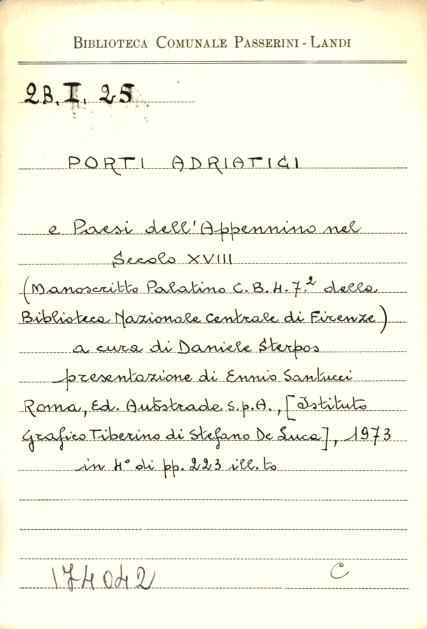 BIBLIOTECA COMUNALE PASSERINI - LANDI
2B. I. 25
PORTI ADRIATICI
e Paesi dell'Appennino nel
Secolo XVIII
(Manoscritto Palatino C.B.4.7.² della
Biblioteca Nazionale Centrale di Firenze)
a cura di Daniele Sterpos
presentazione di Ennio Santucci
Roma, Ed. Autostrade S.p.A., [Istituto
Grafico Tiberino di Stefano De Luca], 1973
in 4° di pp. 223 ill.to
174042 C